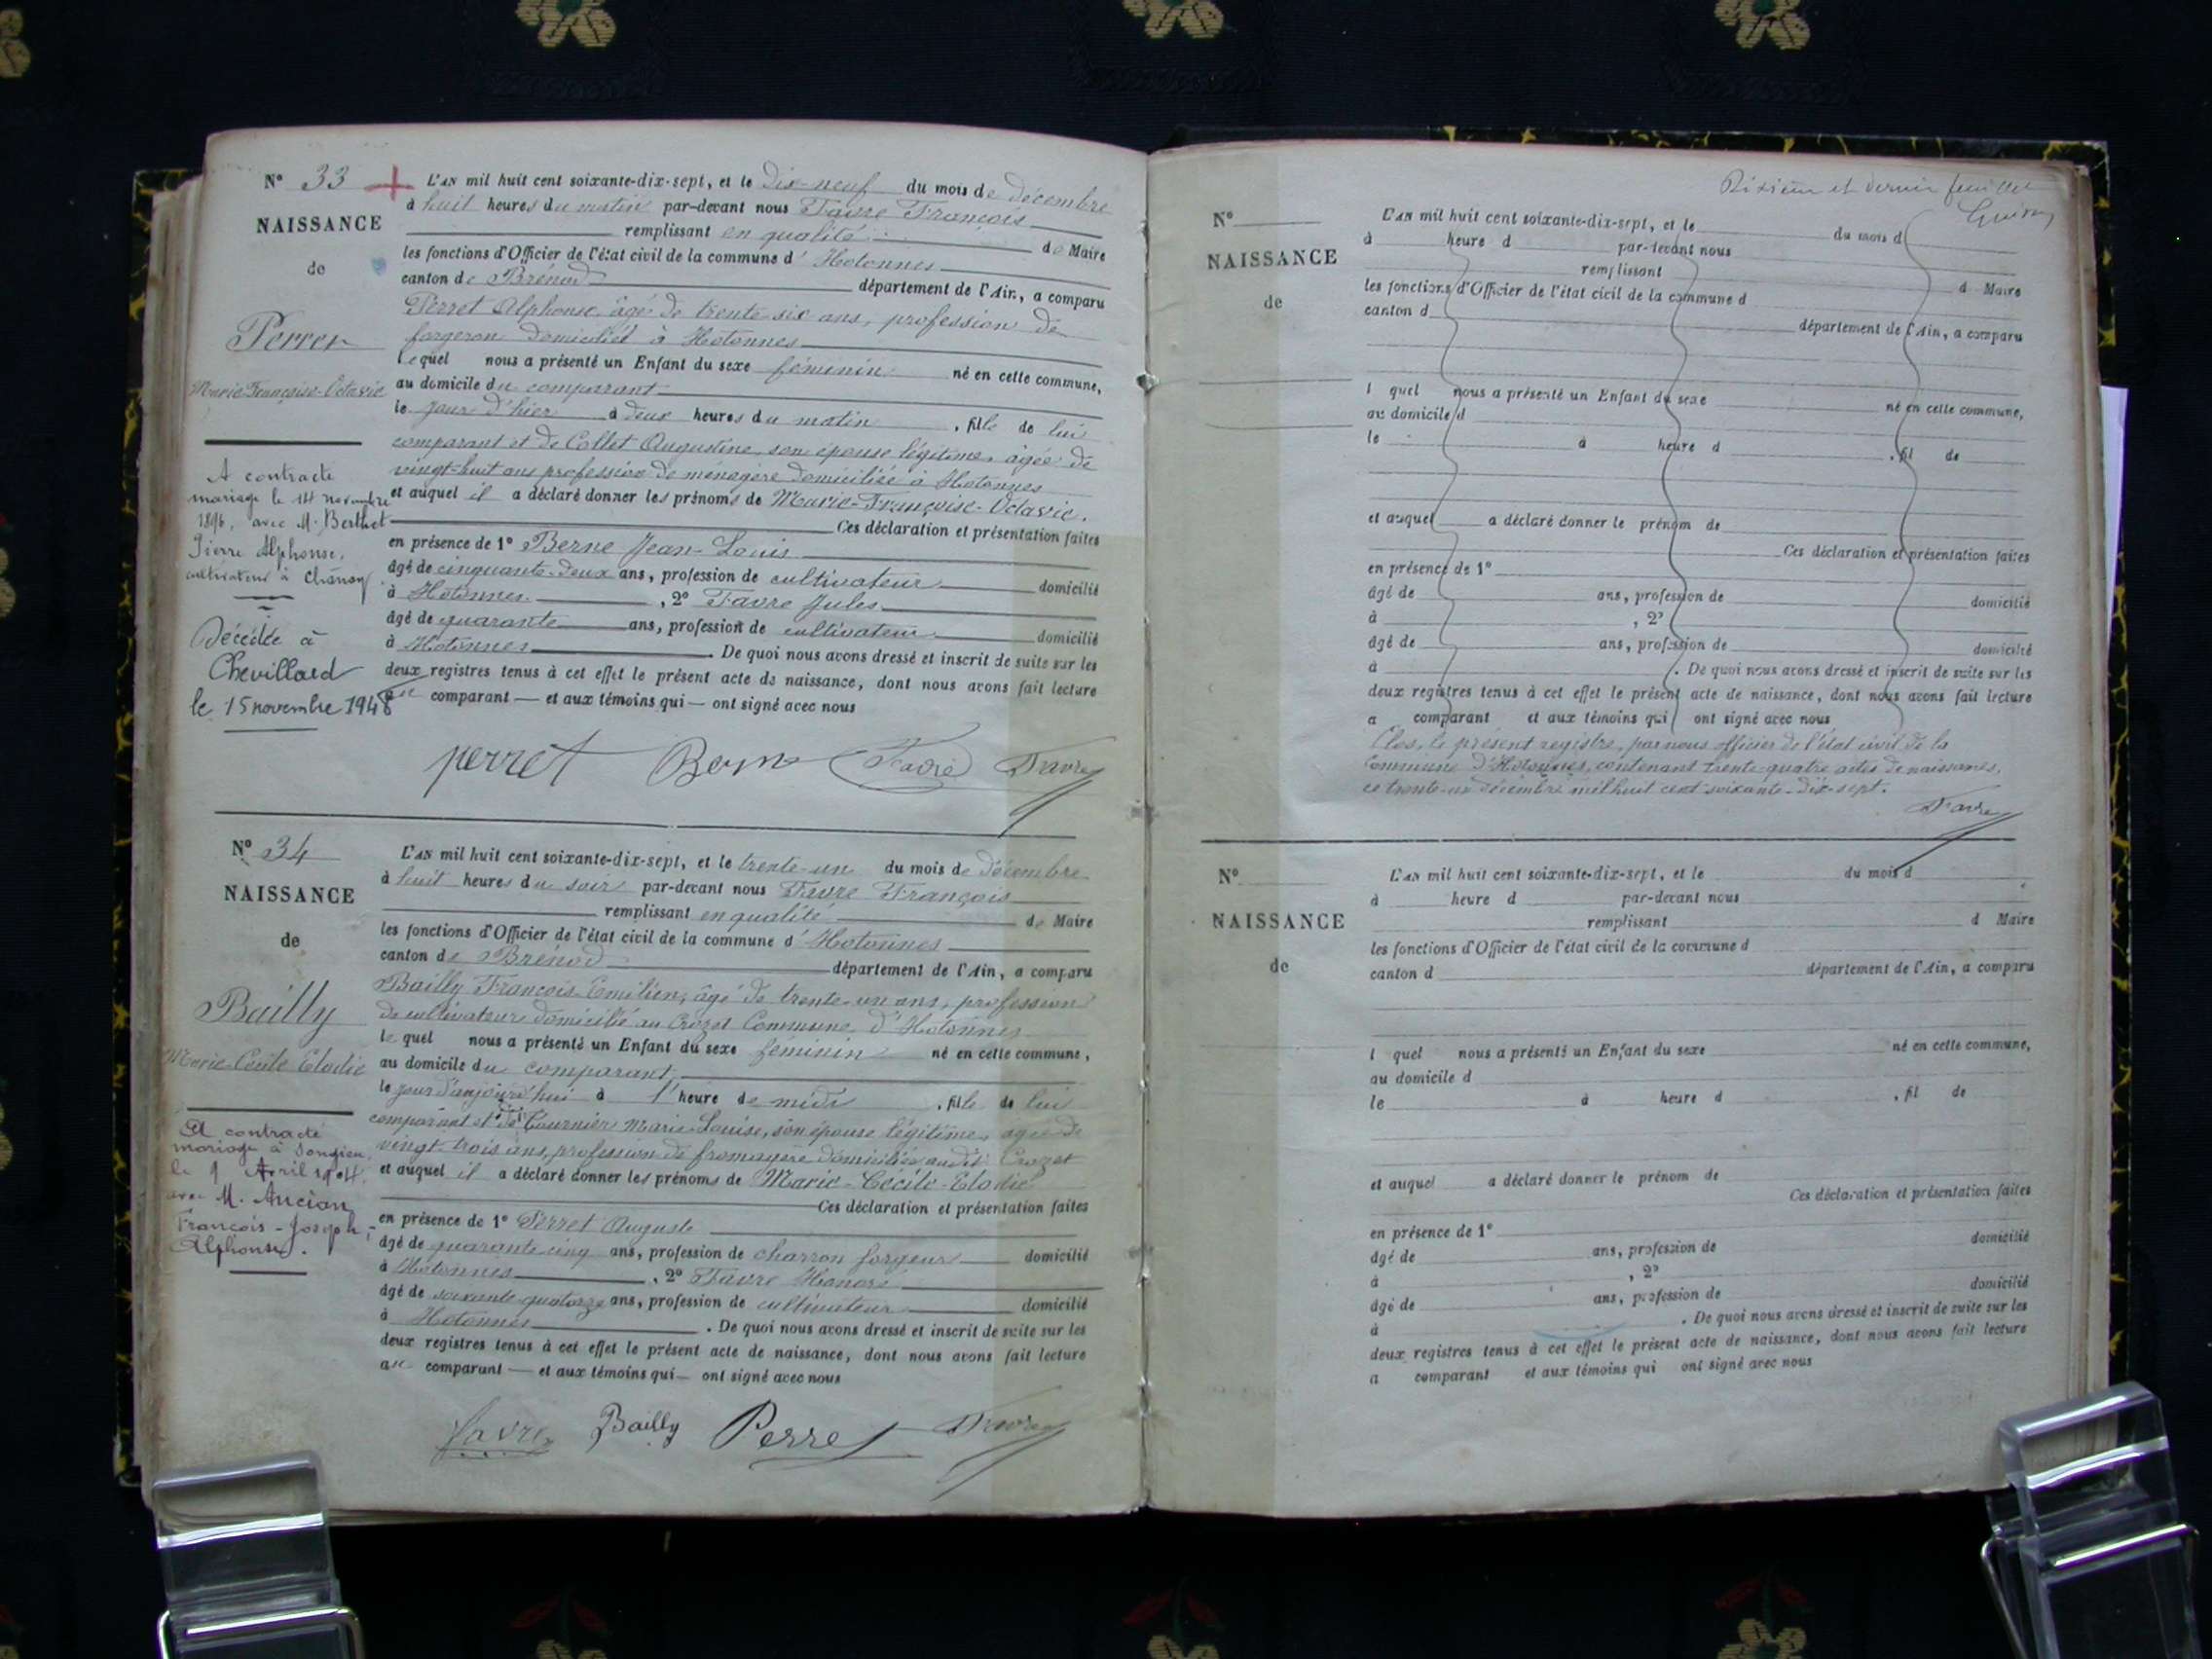 N° 33
NAISSANCE
de
Perret
Marie Françoise-Octavie
A contracté
mariage le 14 novembre
1896, avec M. Berthet
Pierre Alphonse,
cultivateur à
Décédée à
Chevillard
le 15 novembre 1948
L'AN mil huit cent soixante-dix-sept, et le Dix-neuf du mois de décembre
à huit heures du matin par-devant nous Favre François
remplissant en qualité de Maire
les fonctions d'Officier de l'état civil de la commune d'Hotonnes
canton de Brénod département de l'Ain, a comparu
Perret Alphonse âgé de trente-six ans, profession de
forgeron domicilié à Hotonnes
lequel nous a présenté un Enfant du sexe féminin né en cette commune,
au domicile du comparant
le jour d'hier à deux heures du matin, fille de lui
comparant et de Collet Augustine, son épouse légitime, âgée de
vingt-huit ans profession de ménagère domiciliée à Hotonnes
et auquel il a déclaré donner les prénoms de Marie-Françoise-Octavie.
Ces déclaration et présentation faites
en présence de 1° Berne Jean-Louis
âgé de cinquante-deux ans, profession de cultivateur domicilié
à Hotonnes, 2° Favre Jules
âgé de quarante ans, profession de cultivateur domicilié
à Hotonnes. De quoi nous avons dressé et inscrit de suite sur les
deux registres tenus à cet effet le présent acte de naissance, dont nous avons fait lecture
au comparant — et aux témoins qui — ont signé avec nous
perret Favre Favre
N° 34
NAISSANCE
de
Bailly
Marie Cécile Elodie
A contracté
mariage à Songieu,
le 9 Avril 1904,
avec M. Ancian
François-Joseph-
Alphonse.
L'AN mil huit cent soixante-dix-sept, et le trente-un du mois de décembre
à huit heures du soir par-devant nous Favre François
remplissant en qualité de Maire
les fonctions d'Officier de l'état civil de la commune d'Hotonnes
canton de Brénod département de l'Ain, a comparu
Bailly François-Emilien, âgé de trente-un ans, profession
de cultivateur domicilié au Crozet Commune d'Hotonnes
lequel nous a présenté un Enfant du sexe féminin né en cette commune,
au domicile du comparant
le jour d'aujourd'hui à 1' heure de midi, fille de lui
comparant et de Tournier Marie-Louise, son épouse légitime, agée de
vingt-trois ans, profession de fromagère domiciliée audit Crozet
et auquel il a déclaré donner les prénoms de Marie-Cécile-Elodie
Ces déclaration et présentation faites
en présence de 1° Perret Auguste
âgé de quarante cinq ans, profession de charron forgeur domicilié
à Hotonnes, 2° Favre Honoré
âgé de soixante-quatorze ans, profession de cultivateur domicilié
à Hotonnes. De quoi nous avons dressé et inscrit de suite sur les
deux registres tenus à cet effet le présent acte de naissance, dont nous avons fait lecture
au comparant — et aux témoins qui — ont signé avec nous
Favre Bailly Perret Favre
et dernier feuillet
N°
NAISSANCE
de
L'AN mil huit cent soixante-dix-sept, et le du mois d
à heure d par-devant nous
remplissant
d Maire
les fonctions d'Officier de l'état civil de la commune d
canton d département de l'Ain, a comparu
l quel nous a présenté un Enfant du sexe né en cette commune,
au domicile d
le à heure d , fil de
et auquel a déclaré donner le prénom de
Ces déclaration et présentation faites
en présence de 1°
âgé de ans, profession de domicilié
à , 2°
âgé de ans, profession de domicilié
à . De quoi nous avons dressé et inscrit de suite sur les
deux registres tenus à cet effet le présent acte de naissance, dont nous avons fait lecture
a comparant et aux témoins qui ont signé avec nous
Clos, le présent registre, par nous officier de l'état civil de la
Commune d'Hotonnes, contenant trente-quatre actes de naissances,
ce trente-un décembre mil huit cent soixante-dix-sept.
Favre
N°
NAISSANCE
de
L'AN mil huit cent soixante-dix-sept, et le du mois d
à heure d par-devant nous
remplissant d Maire
les fonctions d'Officier de l'état civil de la commune d
canton d département de l'Ain, a comparu
l quel nous a présenté un Enfant du sexe né en cette commune,
au domicile d
le à heure d , fil de
et auquel a déclaré donner le prénom de
Ces déclaration et présentation faites
en présence de 1°
âgé de ans, profession de domicilié
à , 2°
âgé de ans, profession de domicilié
à . De quoi nous avons dressé et inscrit de suite sur les
deux registres tenus à cet effet le présent acte de naissance, dont nous avons fait lecture
a comparant et aux témoins qui ont signé avec nous